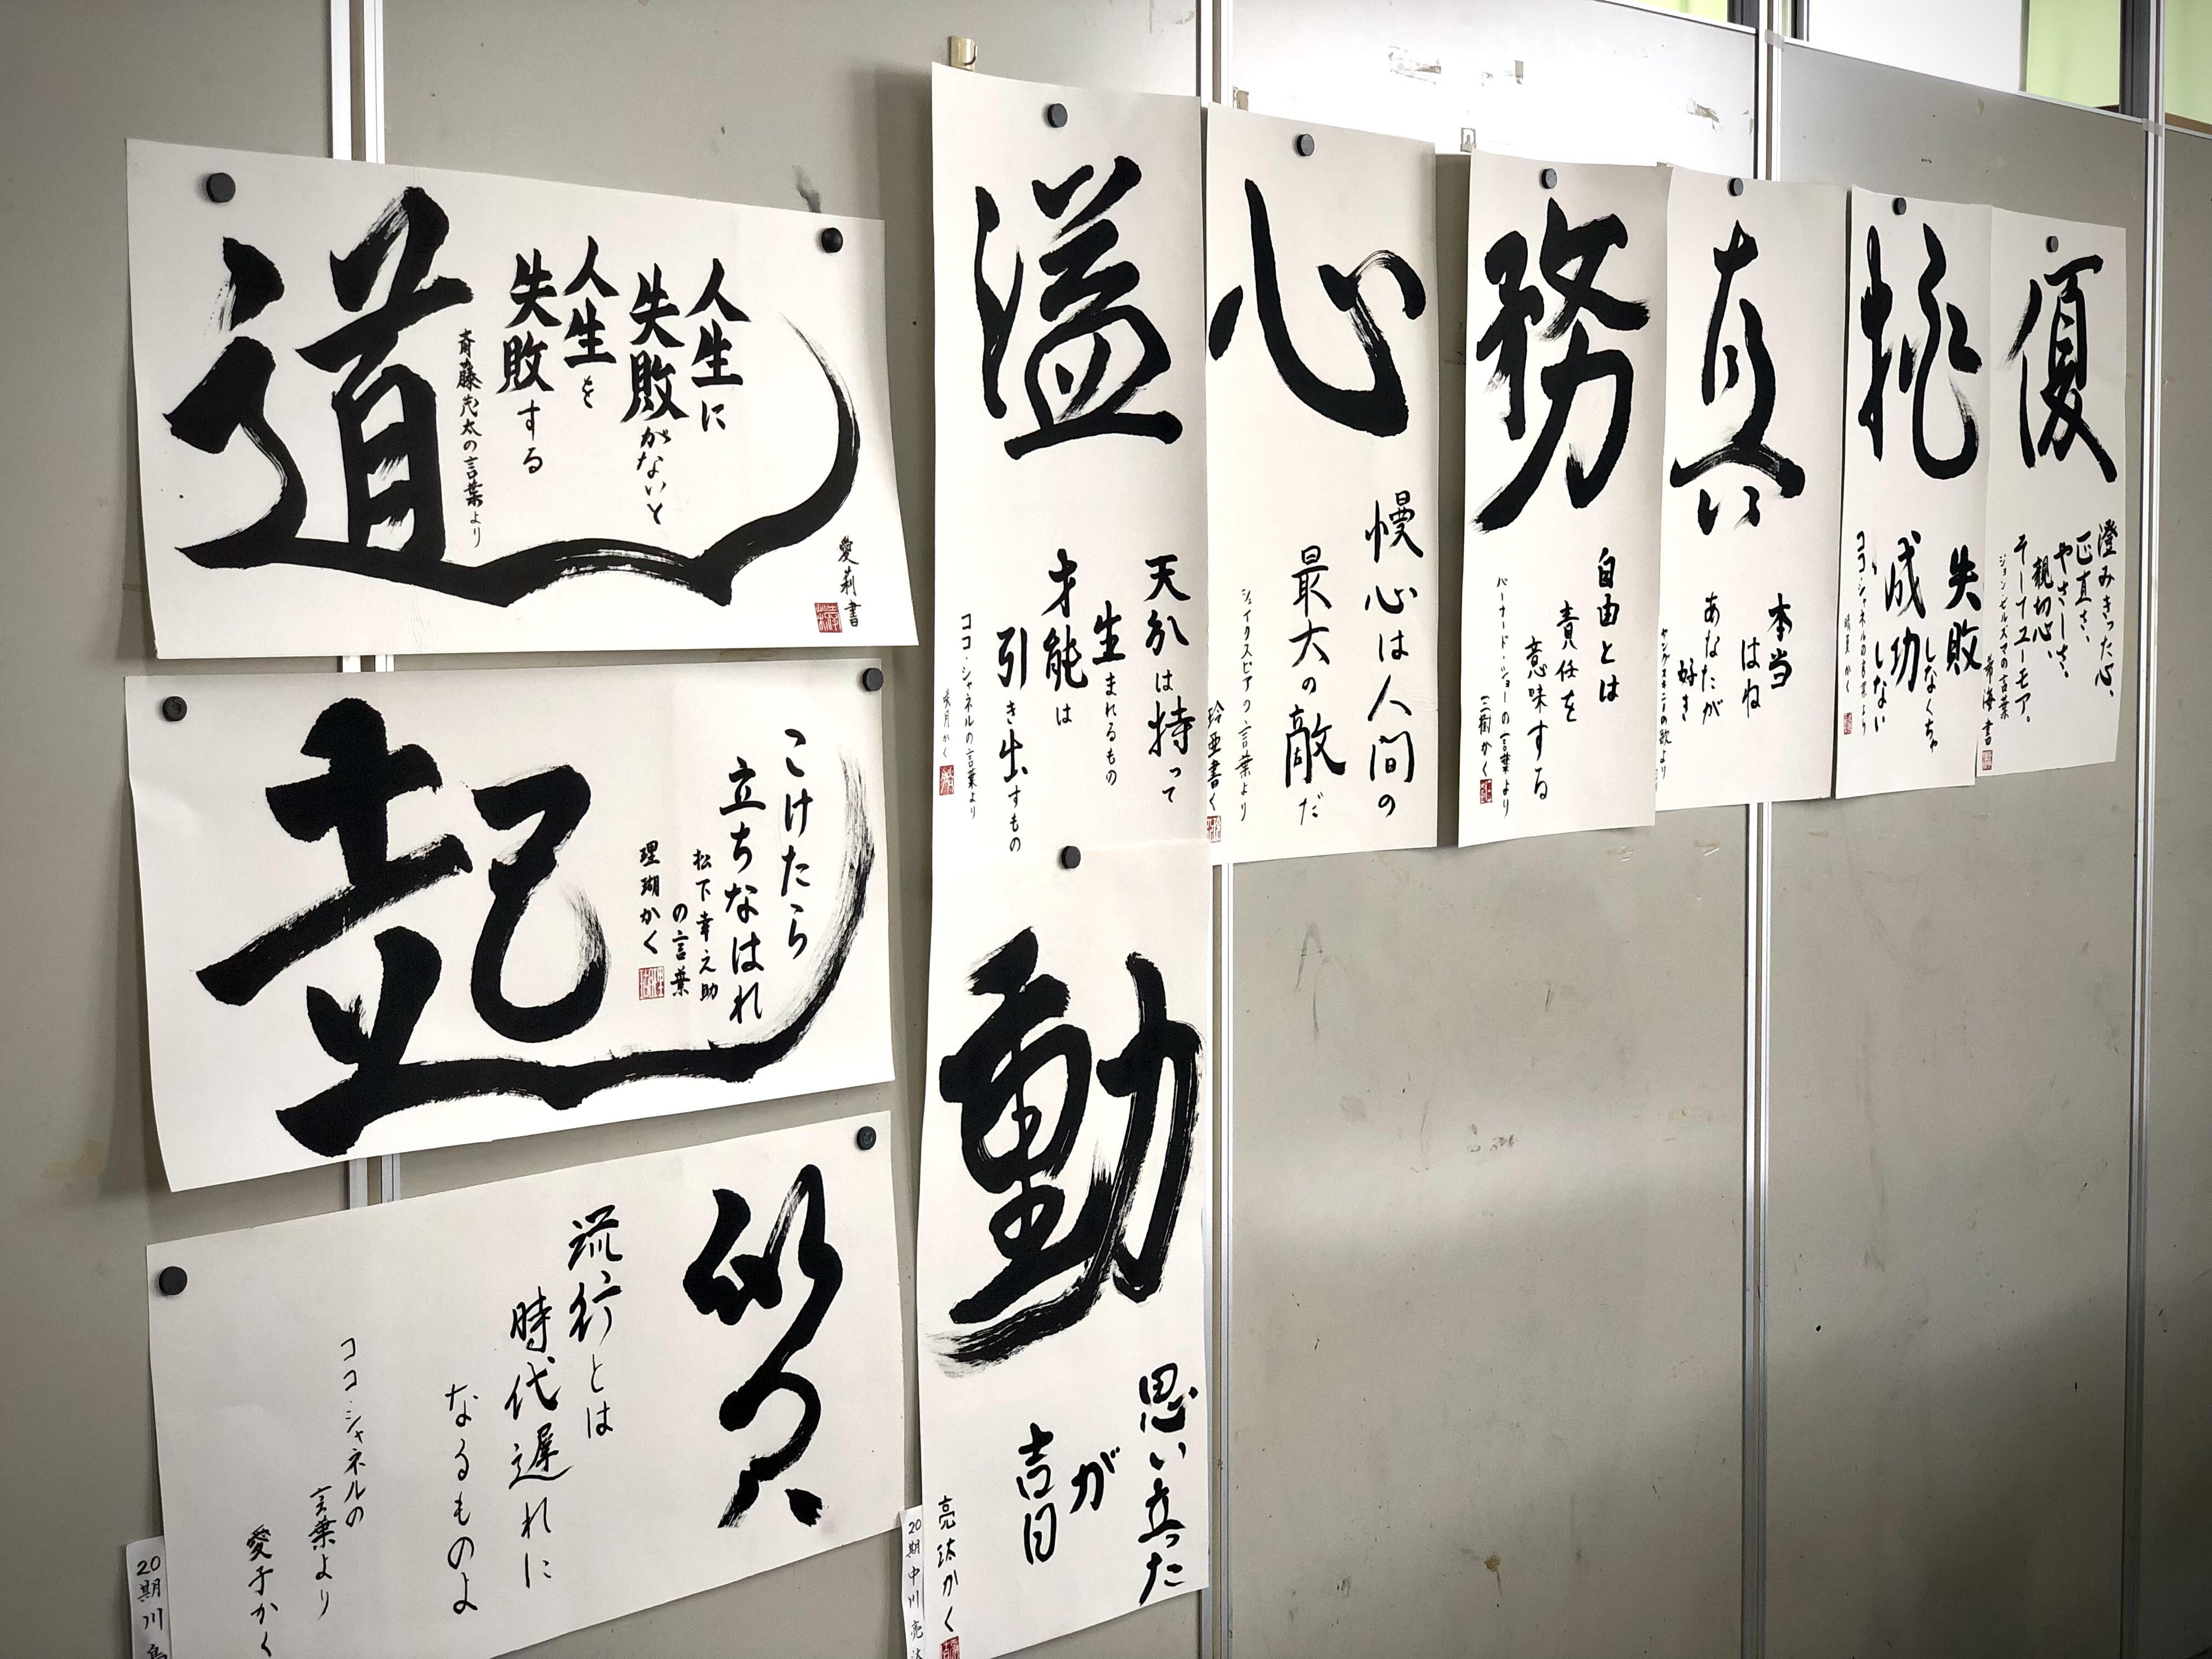 道
人生に
失敗がないと
人生を
失敗する
斎藤茂太の言葉より
愛莉書
起
こけたら
立ちなはれ
松下幸之助
の言葉
理瑚かく
流行とは
時代遅れに
なるものよ
ココ・シャネルの
言葉より
愛子かく
20期川
溢
天分は持って
生まれるもの
才能は
引き出すもの
ココ・シャネルの言葉より
動
思い立った
が
吉日
亮汰かく
20期中川亮汰
心
慢心は人間の
最大の敵だ
シェイクスピアの言葉より
玲亜書く
務
自由とは
責任を
意味する
バーナード・ショーの言葉より
三樹かく
真
本当
はね
あなたが
好き
挑
失敗
しなくちゃ
成功
しない
ココ・シャネルの言葉より
優
澄みきった心、
正直さ、
やさしさ、
親切心、
そしてユーモア。
希海書